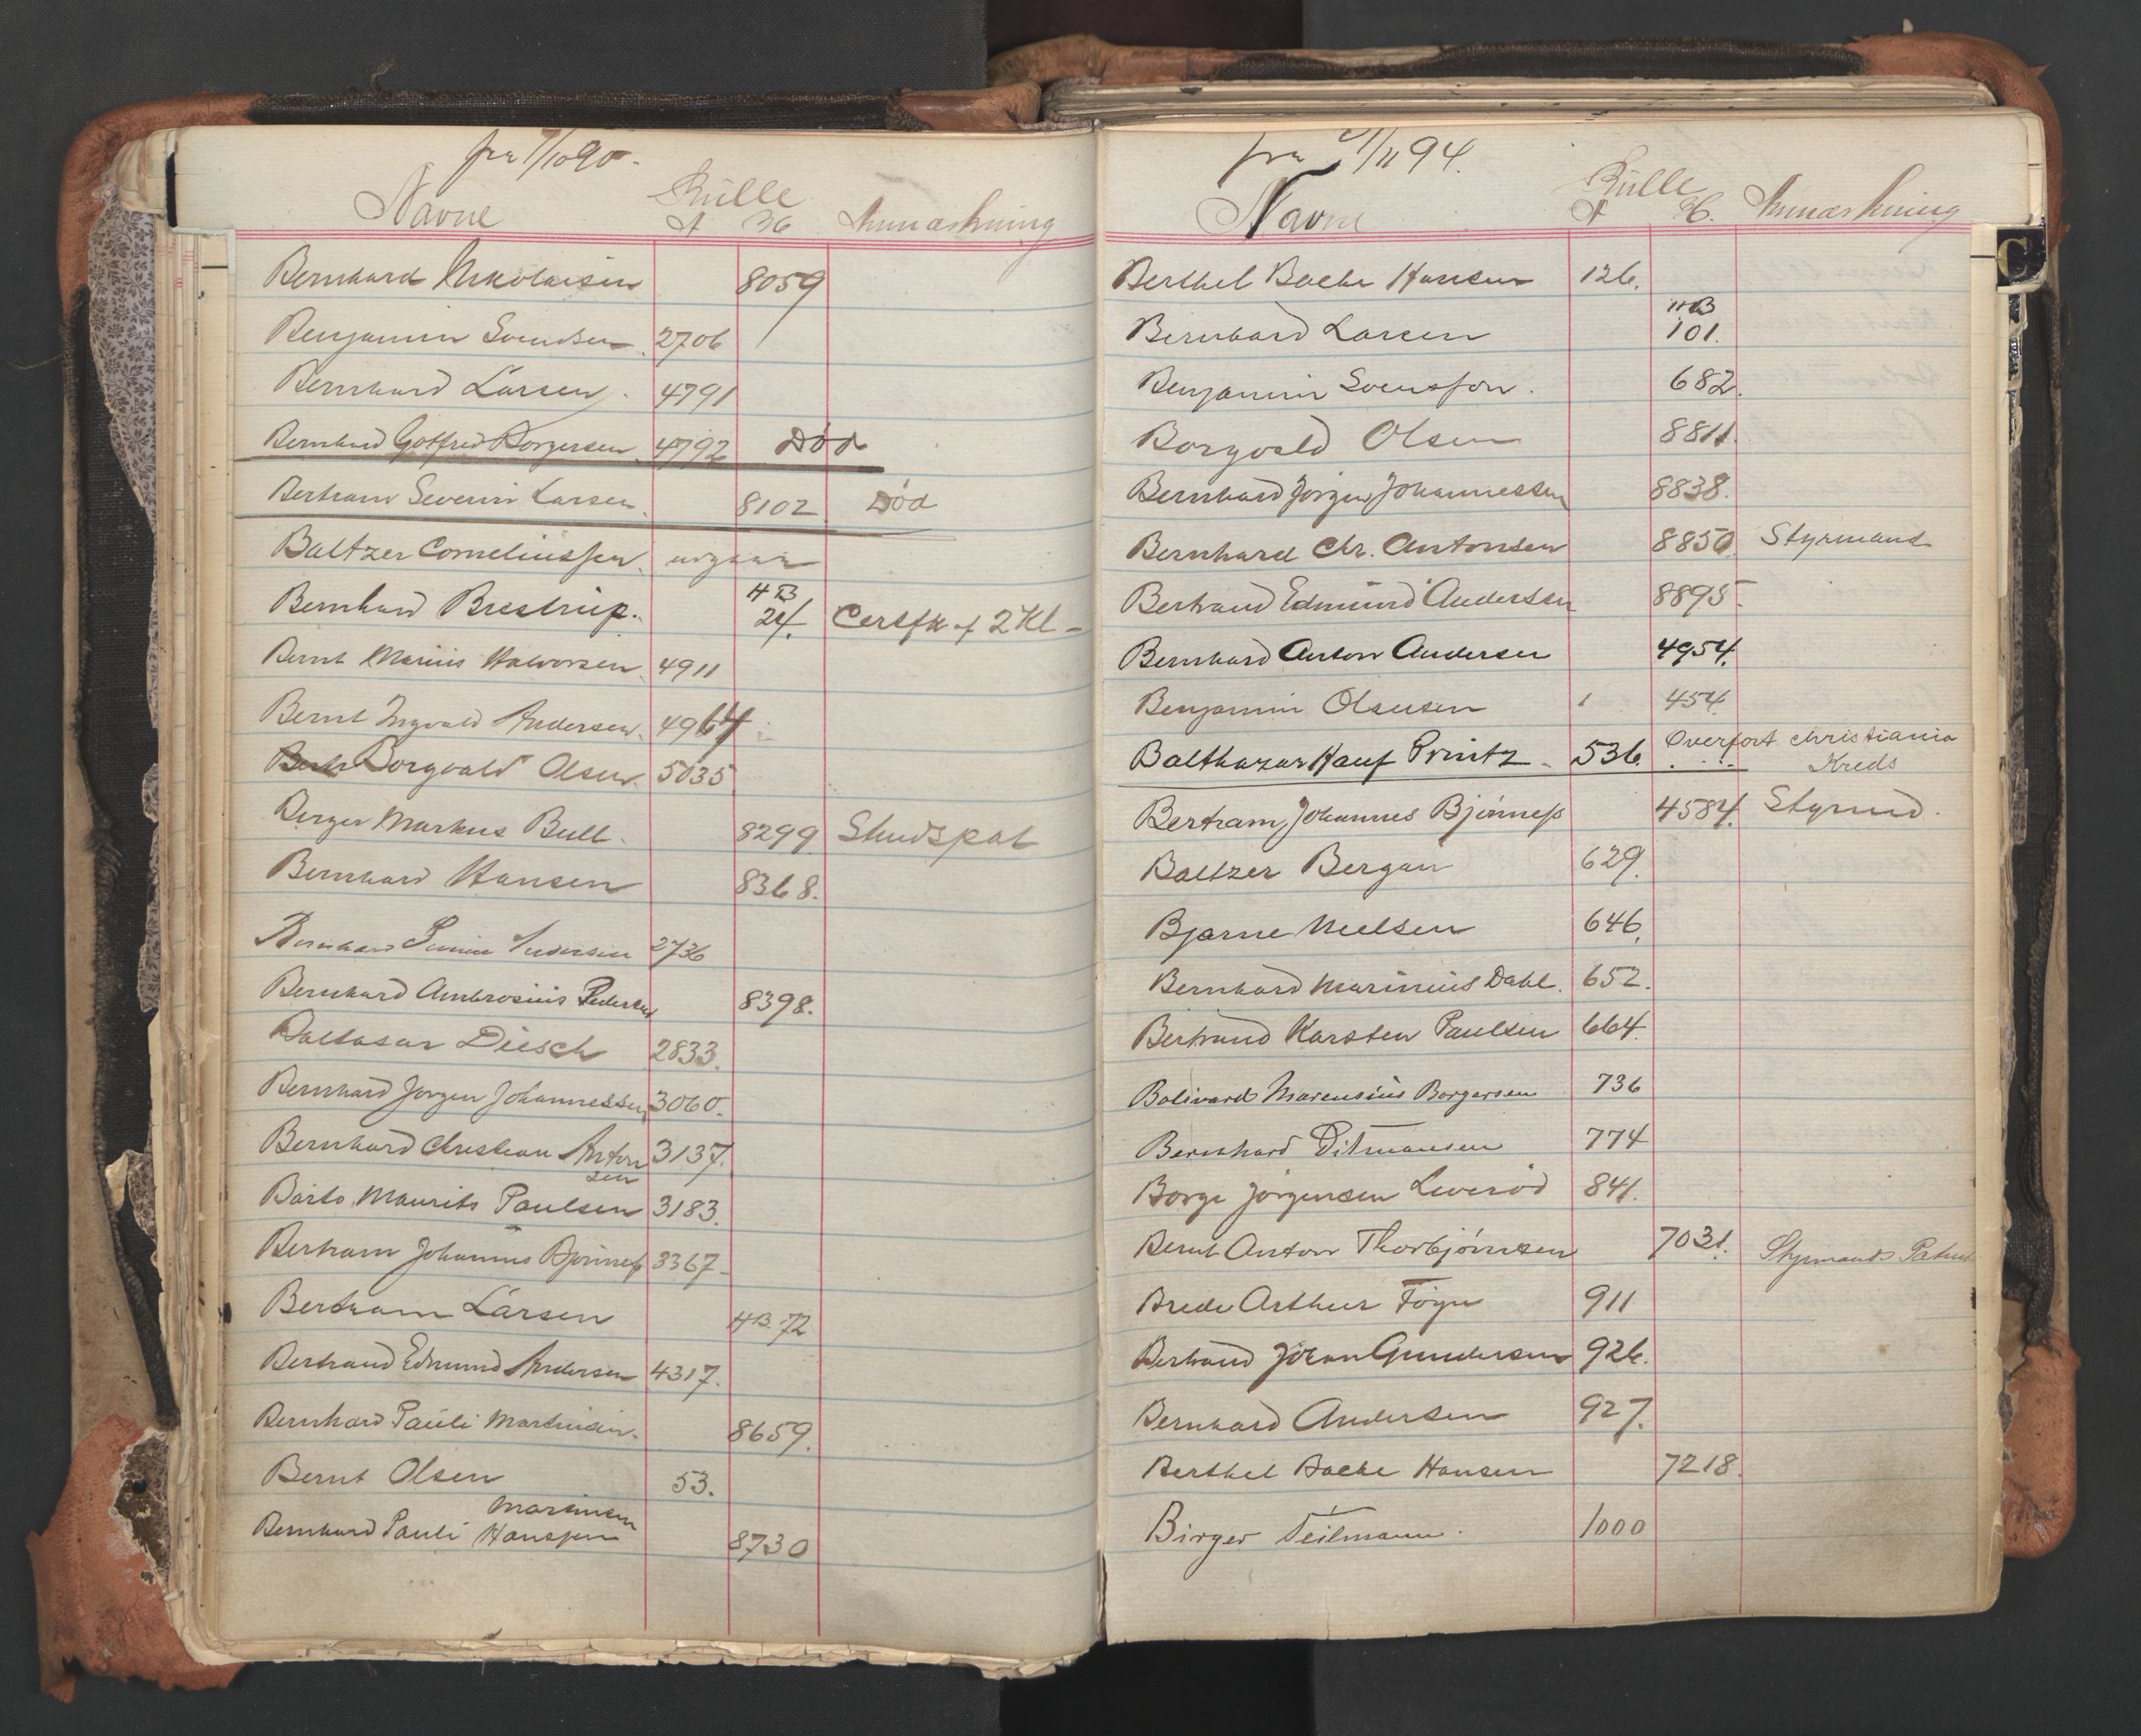 fra 1/10 90.
Navne Rülle Anmærkning
A H
Bernhard Nikolaisen 8059
Benjamin Svendsen 2706
Bernhard Larsen 4791
Bernhard Gotfred Borgersen 4792 Død
Bertram Severin Larsen 8102 Død
Baltzer Corneliussen udgaar
HB
Bernhard Brestrup. 24. Certfk af 2 Kl -
Bernt Marius Halvorsen 4911
Bernt Ingvald Andersen 4964
Borgvald Olsen 5035
Berger Markus Bull 8299 Studspat
Bernhard Hansen 8368.
Bernhard Andersen 2736
Bernhard Ambrosius Pedersen 8398.
Baltasar Diesch 2833.
Bernhard Jørgen Johannessen 3060.
Bernhard Christian Anton 3137.
sen
Barto Maurits Paulsen 3183.
Bertram Johannes Bjønness 3367
Bertram Larsen HB 72
Bertrand Edmund Andersen 4317.
Bernhard Pauli Martinsen 8659.
Bernt Olsen 53.
Martinsen
Bernhard Pauli Hanssen 8730
fra 1/11 94.
Navne Rülle Anmærkning
A H.
Berthel Backe Hansen 126.
HB
Bernhard Larsen 101.
Benjamin Svensson. 682.
Borgvald Olsen 8811.
Bernhard Jørgen Johannessen 8838.
Bernhard Chr. Antonsen 8850 Styrmand
Bertrand Edmund Andersen 8895.
Bernhard Anton Andersen 4954.
Benjamin Olsen 454.
Balthazar Hauf Printz 536. Overført Christiania
Kreds
Bertram Johannes Bjønness 4584. Styrmd.
Baltzer Bergan 629.
Bjarne Nielsen 646.
Bernhard Marinius Dahl. 652.
Bertrand Karsten Paulsen 664.
Bolivard Marensius Borgersen 736
Bernhard Ditmansen 774
Borge Jørgensen Liverød 841.
Bernt Anton Thorbjørnsen 7031. Styrmands Patent
Brede Arthur Føyn 911
Bertrand Johan Gundersen 926.
Bernhard Andersen 927.
Berthel Backe Hansen 7218.
Birger Teilmann. 1000
C